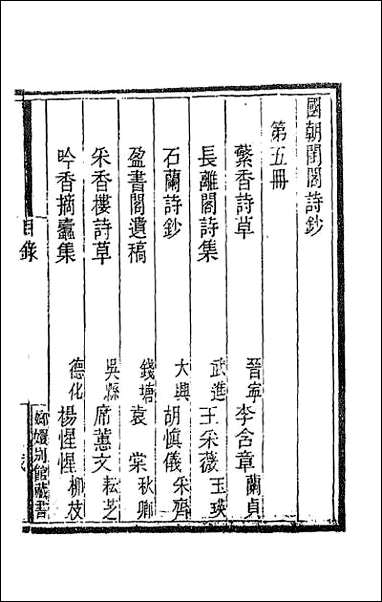 國朝閨閣詩鈔
第五冊
蘩香詩草 晉寧 李含章 蘭貞
長離閣詩集 武進 王采薇 玉瑛
石蘭詩鈔 大興 胡愼儀 采齊
盈書閣遺稿 錢塘 袁棠 秋卿
采香樓詩草 吳縣 席蕙文 耘芝
吟香摘蠹集 德化 楊惺惺 柳枝
目錄
嫏嬛別館藏書